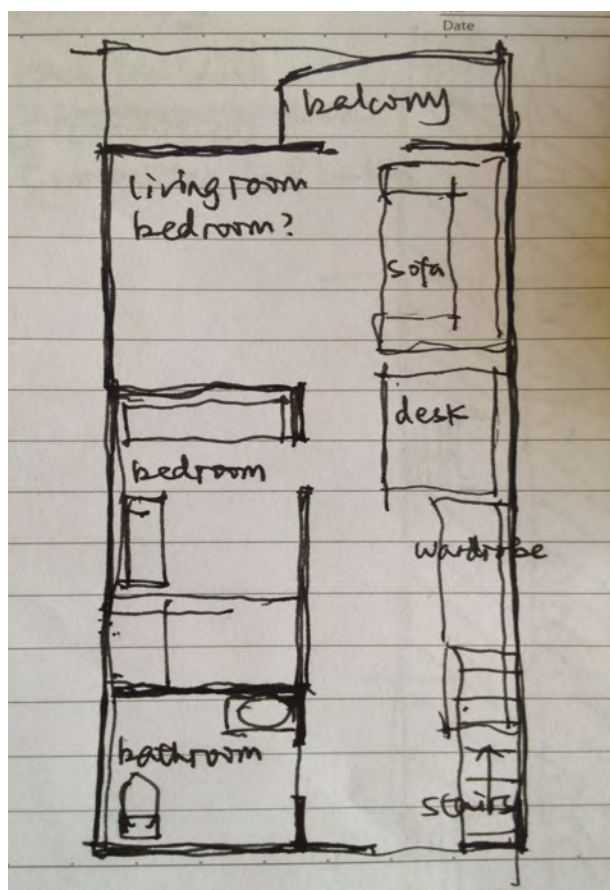 Date
balcony
living room
bedroom?
sofa
desk
bedroom
wardrobe
bathroom
stairs